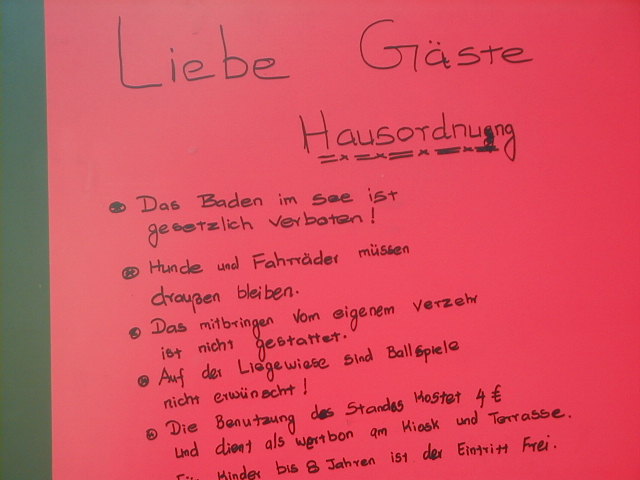 Liebe Gäste
Hausordnung
Das Baden im see ist
gesetzlich verboten!
Hunde und Fahrräder müssen
draußen bleiben.
Das mitbringen vom eigenem verzehr
ist nicht gestattet.
Auf der Liegewiese sind Ballspiele
nicht erwünscht!
Die Benutzung des Standes kostet 4 €
und dient als wertbon am Kiosk und Terrasse.
Für Kinder bis 8 Jahren ist der Eintritt Frei.